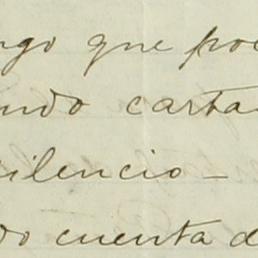 ngo que poc
ndo carta
silencio -
do cuenta d